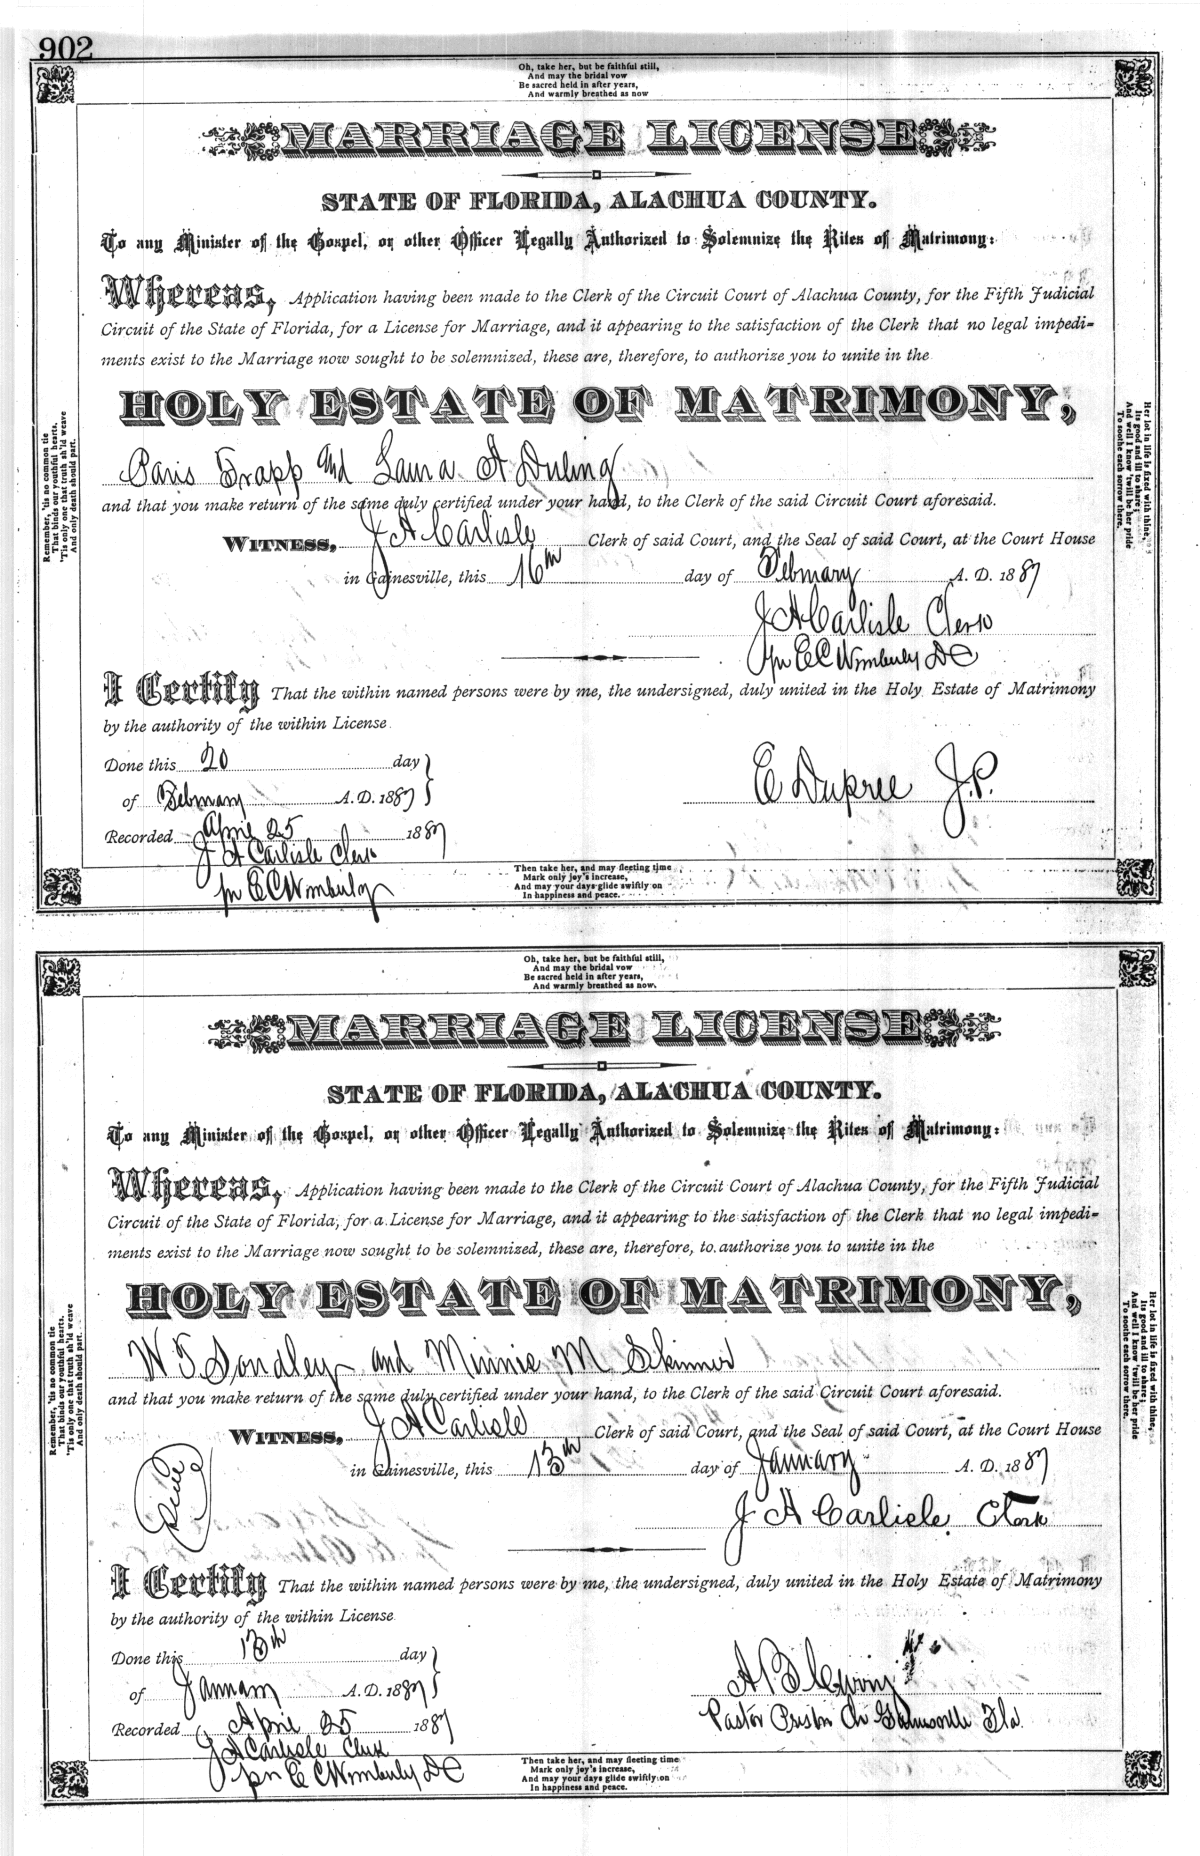 902
Oh, take her, but be faithful still,
And may the bridal vow
Be sacred held in after years,
And warmly breathed as now
MARRIAGE LICENSE
STATE OF FLORIDA, ALACHUA COUNTY.
To any Minister of the Gospel, or other Officer Legally Authorized to Solemnize the Rites of Matrimony:
Whereas, Application having been made to the Clerk of the Circuit Court of Alachua County, for the Fifth Judicial
Circuit of the State of Florida, for a License for Marriage, and it appearing to the satisfaction of the Clerk that no legal impedi-
ments exist to the Marriage now sought to be solemnized, these are, therefore, to authorize you to unite in the
HOLY ESTATE OF MATRIMONY,
Paris Trapp and Laura A Duling
and that you make return of the same duly certified under your hand, to the Clerk of the said Circuit Court aforesaid.
WITNESS, J A Carlisle Clerk of said Court, and the Seal of said Court, at the Court House
in Gainesville, this 16th day of February A. D. 1887
J A Carlisle Clerk
pr E C Wimberly DC
I Certify That the within named persons were by me, the undersigned, duly united in the Holy Estate of Matrimony
by the authority of the within License
Done this 20 day
of February A. D. 1887
E Dupree J.P.
Recorded April 25 1887
J A Carlisle Clerk
pr E C Wimberly
Remember, 'tis no common tie
That binds our youthful hearts,
'Tis only one that truth sh'ld weave
And only death should part.
Her lot in life is fixed with thine,
Its good and ill to share;
And well I know 'twill be her pride
To soothe each sorrow there.
Then take her, and may fleeting time
Mark only joy's increase,
And may your days glide swiftly on
In happiness and peace.
Oh, take her, but be faithful still,
And may the bridal vow
Be sacred held in after years,
And warmly breathed as now.
MARRIAGE LICENSE
STATE OF FLORIDA, ALACHUA COUNTY.
To any Minister of the Gospel, or other Officer Legally Authorized to Solemnize the Rites of Matrimony:
Whereas, Application having been made to the Clerk of the Circuit Court of Alachua County, for the Fifth Judicial
Circuit of the State of Florida, for a License for Marriage, and it appearing to the satisfaction of the Clerk that no legal impedi-
ments exist to the Marriage now sought to be solemnized, these are, therefore, to authorize you to unite in the
HOLY ESTATE OF MATRIMONY,
W T Sondley and Minnie M Skinner
and that you make return of the same duly certified under your hand, to the Clerk of the said Circuit Court aforesaid.
WITNESS, J A Carlisle Clerk of said Court, and the Seal of said Court, at the Court House
in Gainesville, this 13th day of January A. D. 1887
J A Carlisle Clerk
I Certify That the within named persons were by me, the undersigned, duly united in the Holy Estate of Matrimony
by the authority of the within License
Done this 13th day
of January A. D. 1887
A B
Pastor Ch Gainesville Fla
Recorded April 25 1887
J A Carlisle Clerk
pr E C Wimberly DC
Remember, 'tis no common tie
That binds our youthful hearts.
'Tis only one that truth sh'ld weave
And only death should part.
Her lot in life is fixed with thine,
Its good and ill to share;
And well I know 'twill be her pride
To soothe each sorrow there.
Then take her, and may fleeting time
Mark only joy's increase,
And may your days glide swiftly on
In happiness and peace.